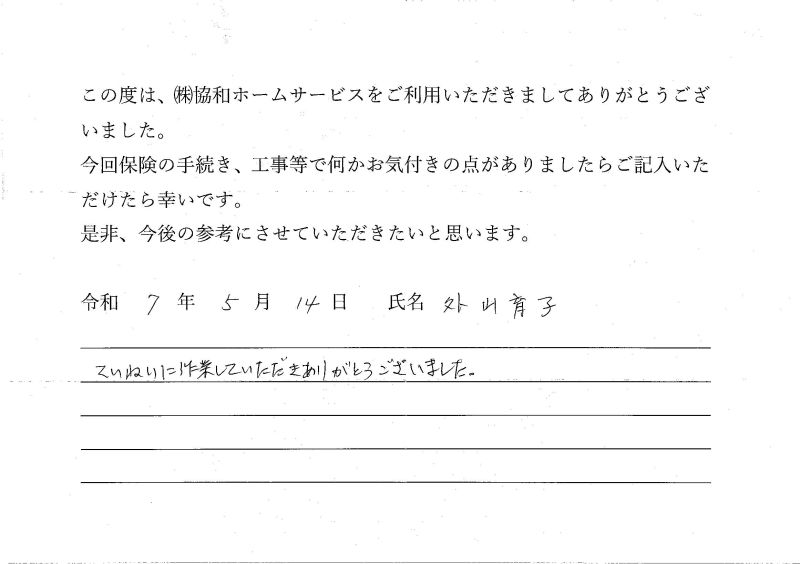 この度は、㈱協和ホームサービスをご利用いただきましてありがとうござ
いました。
今回保険の手続き、工事等で何かお気付きの点がありましたらご記入いた
だけたら幸いです。
是非、今後の参考にさせていただきたいと思います。
令和 7 年 5 月 14 日 氏名 外山育子
ていねいに作業していただきありがとうございました。